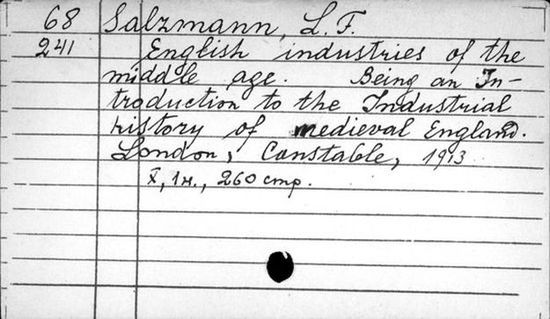 68 Salzmann, L. F.
241 English industries of the
middle age. Being an In-
troduction to the Industrial
history of medieval England.
London, Constable, 1913
X, 1н., 260 стр.